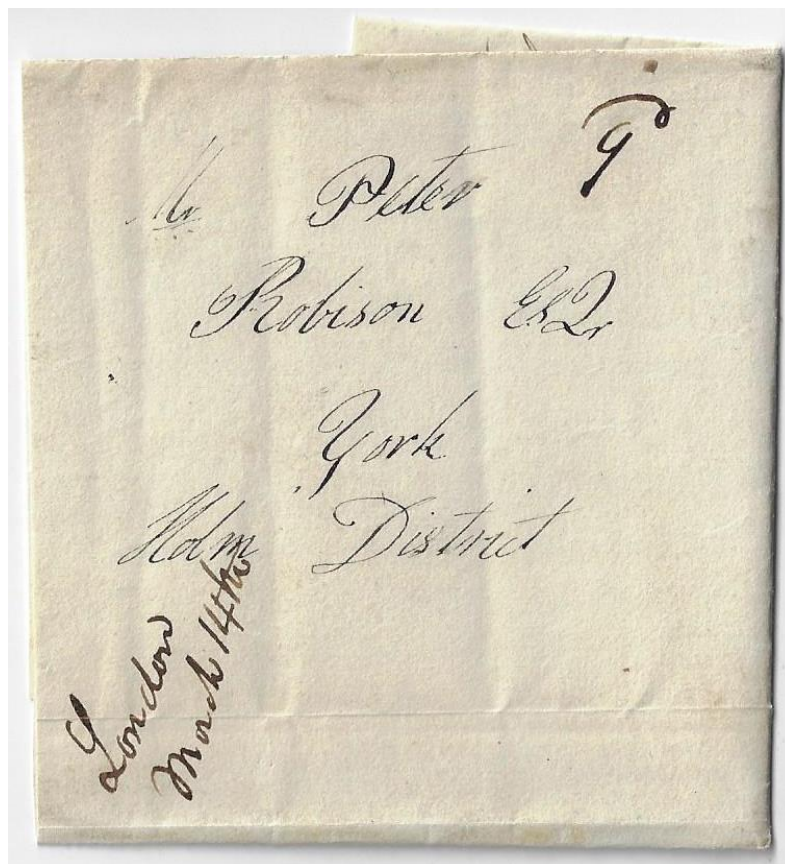 9
Mr Peter
Robison EsQr
York
Holm District
London
March 14th